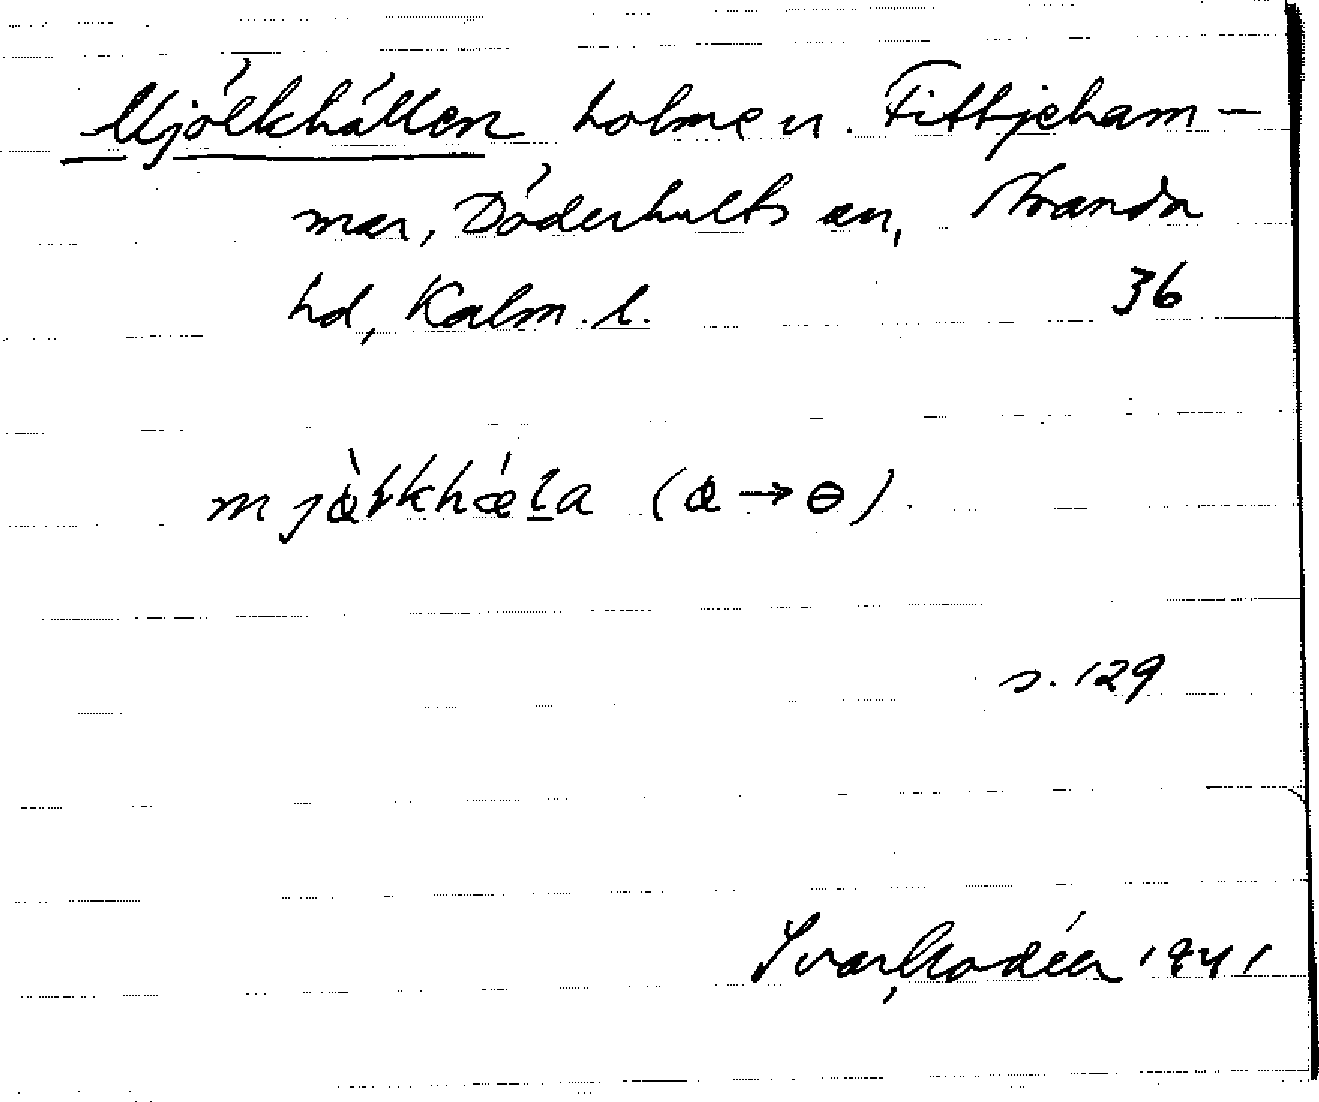 Mjölkhällen holme u. Fittjeham-
mar, Döderhults sn, Stranda
hd, Kalm. l. 36
(æ → ɵ).
s. 129
Ivar Modéer 1941